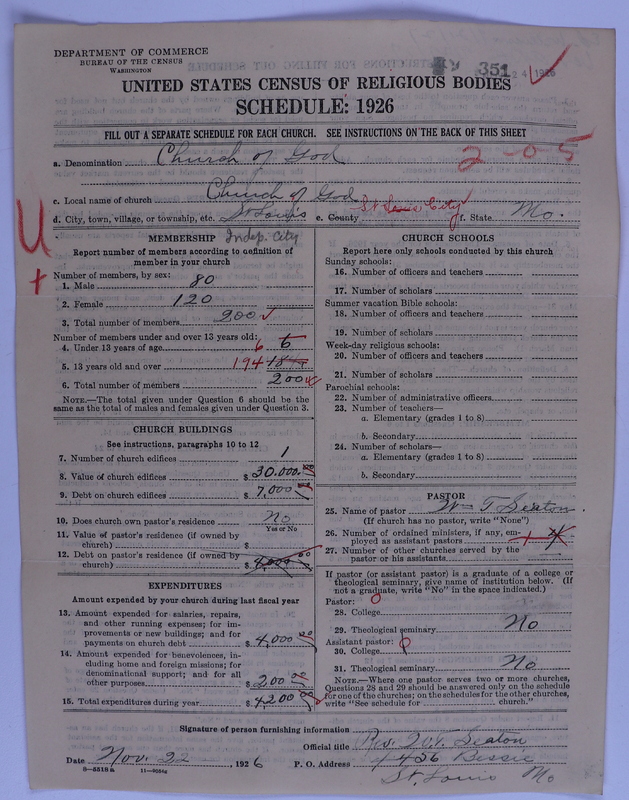 DEPARTMENT OF COMMERCE
BUREAU OF THE CENSUS
WASHINGTON
351
24 1926
UNITED STATES CENSUS OF RELIGIOUS BODIES
SCHEDULE: 1926
FILL OUT A SEPARATE SCHEDULE FOR EACH CHURCH. SEE INSTRUCTIONS ON THE BACK OF THIS SHEET
a. Denomination Church of God
2-0-5
c. Local name of church Church of God
d. City, town, village, or township, etc. St Louis e. County St Louis City f. State Mo.
U
MEMBERSHIP Indep. City
Report number of members according to definition of
member in your church
Number of members, by sex:
1. Male 80
2. Female 120
3. Total number of members 200
Number of members under and over 13 years old:
4. Under 13 years of age 6 6
5. 13 years old and over 194
6. Total number of members 200
NOTE.—The total given under Question 6 should be the
same as the total of males and females given under Question 3.
CHURCH BUILDINGS
See instructions, paragraphs 10 to 12
7. Number of church edifices 1
8. Value of church edifices $ 30.000.00
9. Debt on church edifices $ 7,000
10. Does church own pastor's residence No
Yes or No
11. Value of pastor's residence (if owned by
church) $
12. Debt on pastor's residence (if owned by
church) $ 4,000 00
EXPENDITURES
Amount expended by your church during last fiscal year
13. Amount expended for salaries, repairs,
and other running expenses; for im-
provements or new buildings; and for
payments on church debt $ 4,000 00
14. Amount expended for benevolences, in-
cluding home and foreign missions; for
denominational support; and for all
other purposes $ 200 00
15. Total expenditures during year $ 4200 00
CHURCH SCHOOLS
Report here only schools conducted by this church
Sunday schools:
16. Number of officers and teachers
17. Number of scholars
Summer vacation Bible schools:
18. Number of officers and teachers
19. Number of scholars
Week-day religious schools:
20. Number of officers and teachers
21. Number of scholars
Parochial schools:
22. Number of administrative officers
23. Number of teachers—
a. Elementary (grades 1 to 8)
b. Secondary
24. Number of scholars—
a. Elementary (grades 1 to 8)
b. Secondary
PASTOR
25. Name of pastor Wm T Seaton
(If church has no pastor, write "None")
26. Number of ordained ministers, if any, em-
ployed as assistant pastors
27. Number of other churches served by the
pastor or his assistants
If pastor (or assistant pastor) is a graduate of a college or
theological seminary, give name of institution below. (If
not a graduate, write "No" in the space indicated.)
Pastor: 0
28. College
29. Theological seminary No
Assistant pastor:
30. College
31. Theological seminary No
NOTE.—Where one pastor serves two or more churches,
Questions 28 and 29 should be answered only on the schedule
for one of the churches; on the schedules for the other churches,
write "See schedule for church."
Signature of person furnishing information
Official title Rev. W.T. Seaton
Date Nov. 22, 1926 P. O. Address 4426 Bessie
8—6518a 11—9054g
St. Louis Mo